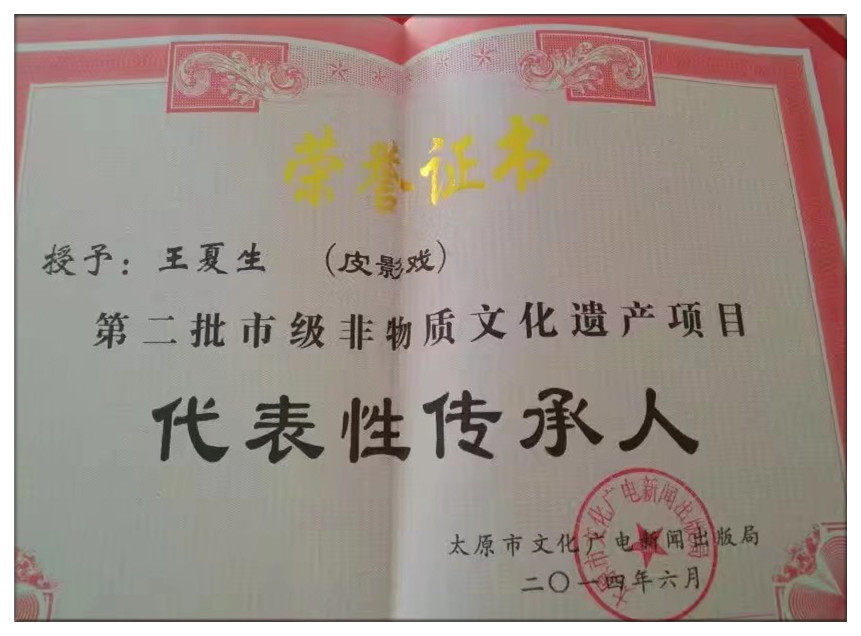 荣誉证书
授予：王夏生 （皮影戏）
第二批市级非物质文化遗产项目
代表性传承人
太原市文化广电新闻出版局
二〇一四年六月
太原市文化广电新闻出版局